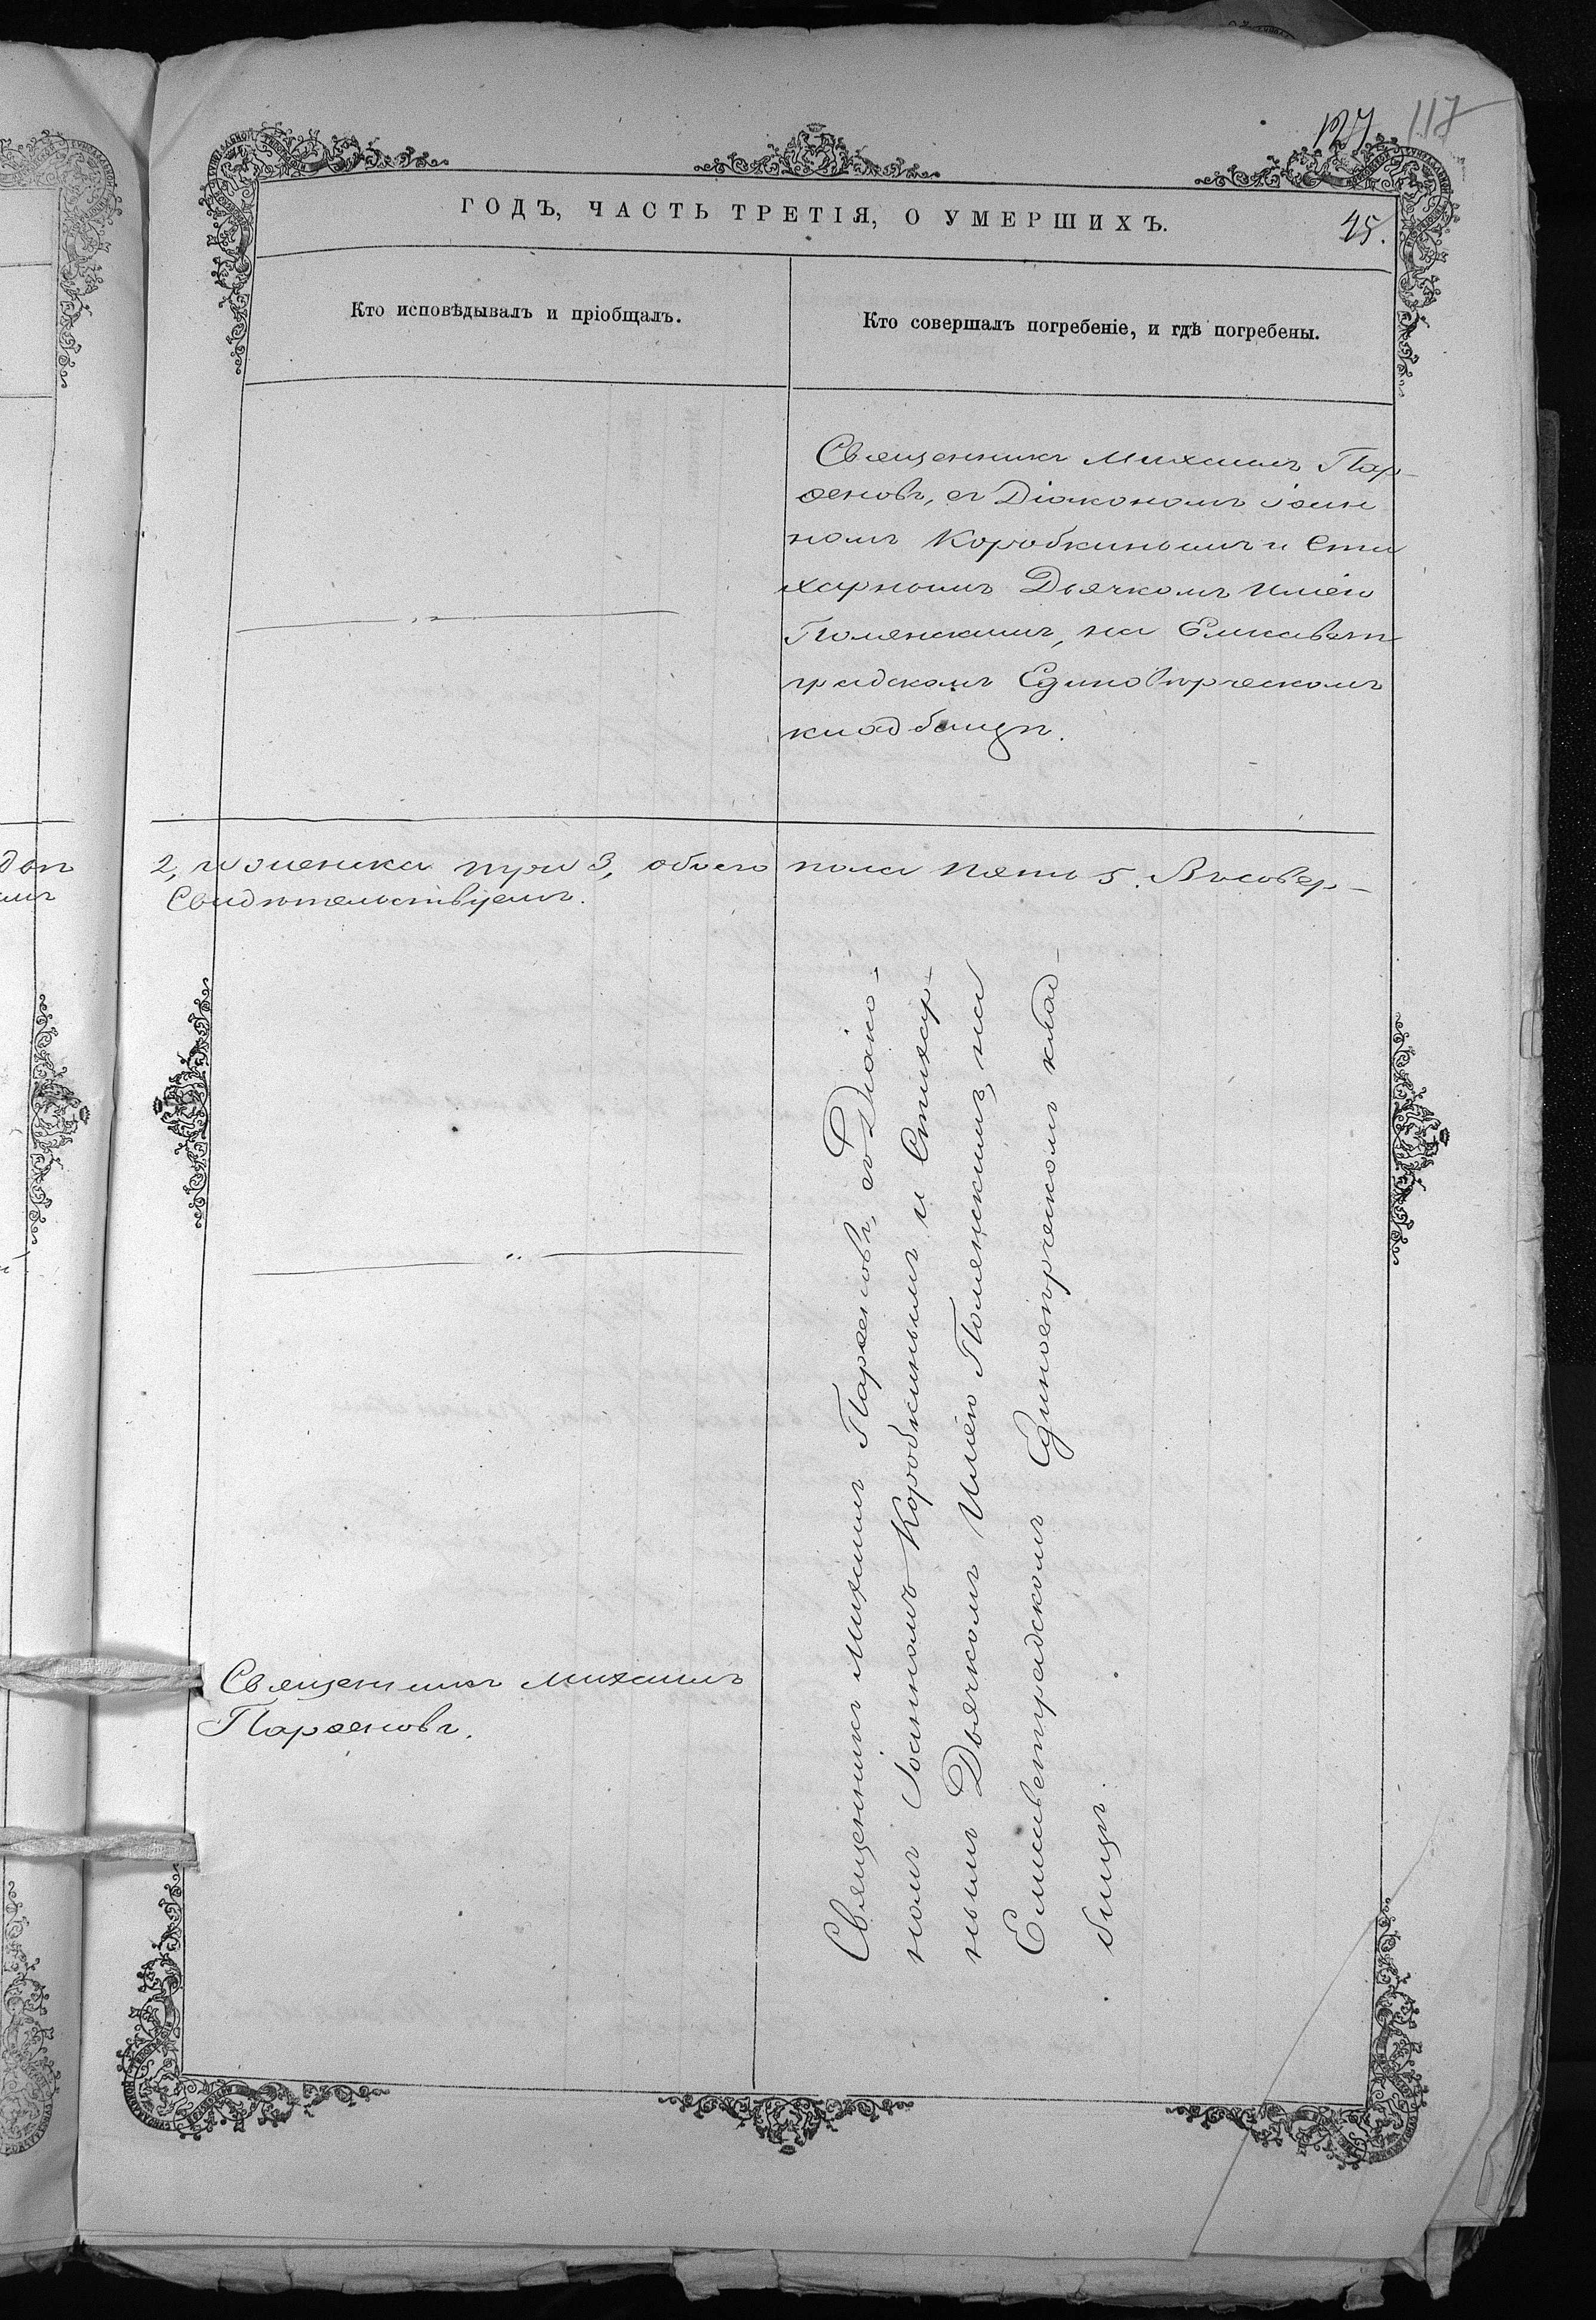 127 117
ГОДЪ, ЧАСТЬ ТРЕТІЯ, О УМЕРШИХЪ.
45.
Кто исповѣдывалъ и пріобщалъ.
Кто совершалъ погребеніе, и гдѣ погребены.
Священникъ Михаилъ Пар-
ѳеновъ, съ Діакономъ Іоан
номъ Коробкинымъ и Сти
харнымъ Дьячкомъ Иліею
на Елисавет
градскомъ Единовѣрческомъ
кладбищѣ.
2, женска три 3, обоего пола пять 5. Въ совер-
Свидѣтельствуемъ.
Священникъ Михаилъ Парѳеновъ, съ Діако-
номъ Іоанномъ Коробкинымъ и Стихар-
нымъ Дьячкомъ Иліею на
Елисаветградскомъ Единовѣрческомъ клад-
бищѣ.
Священникъ Михаилъ
Парѳеновъ.